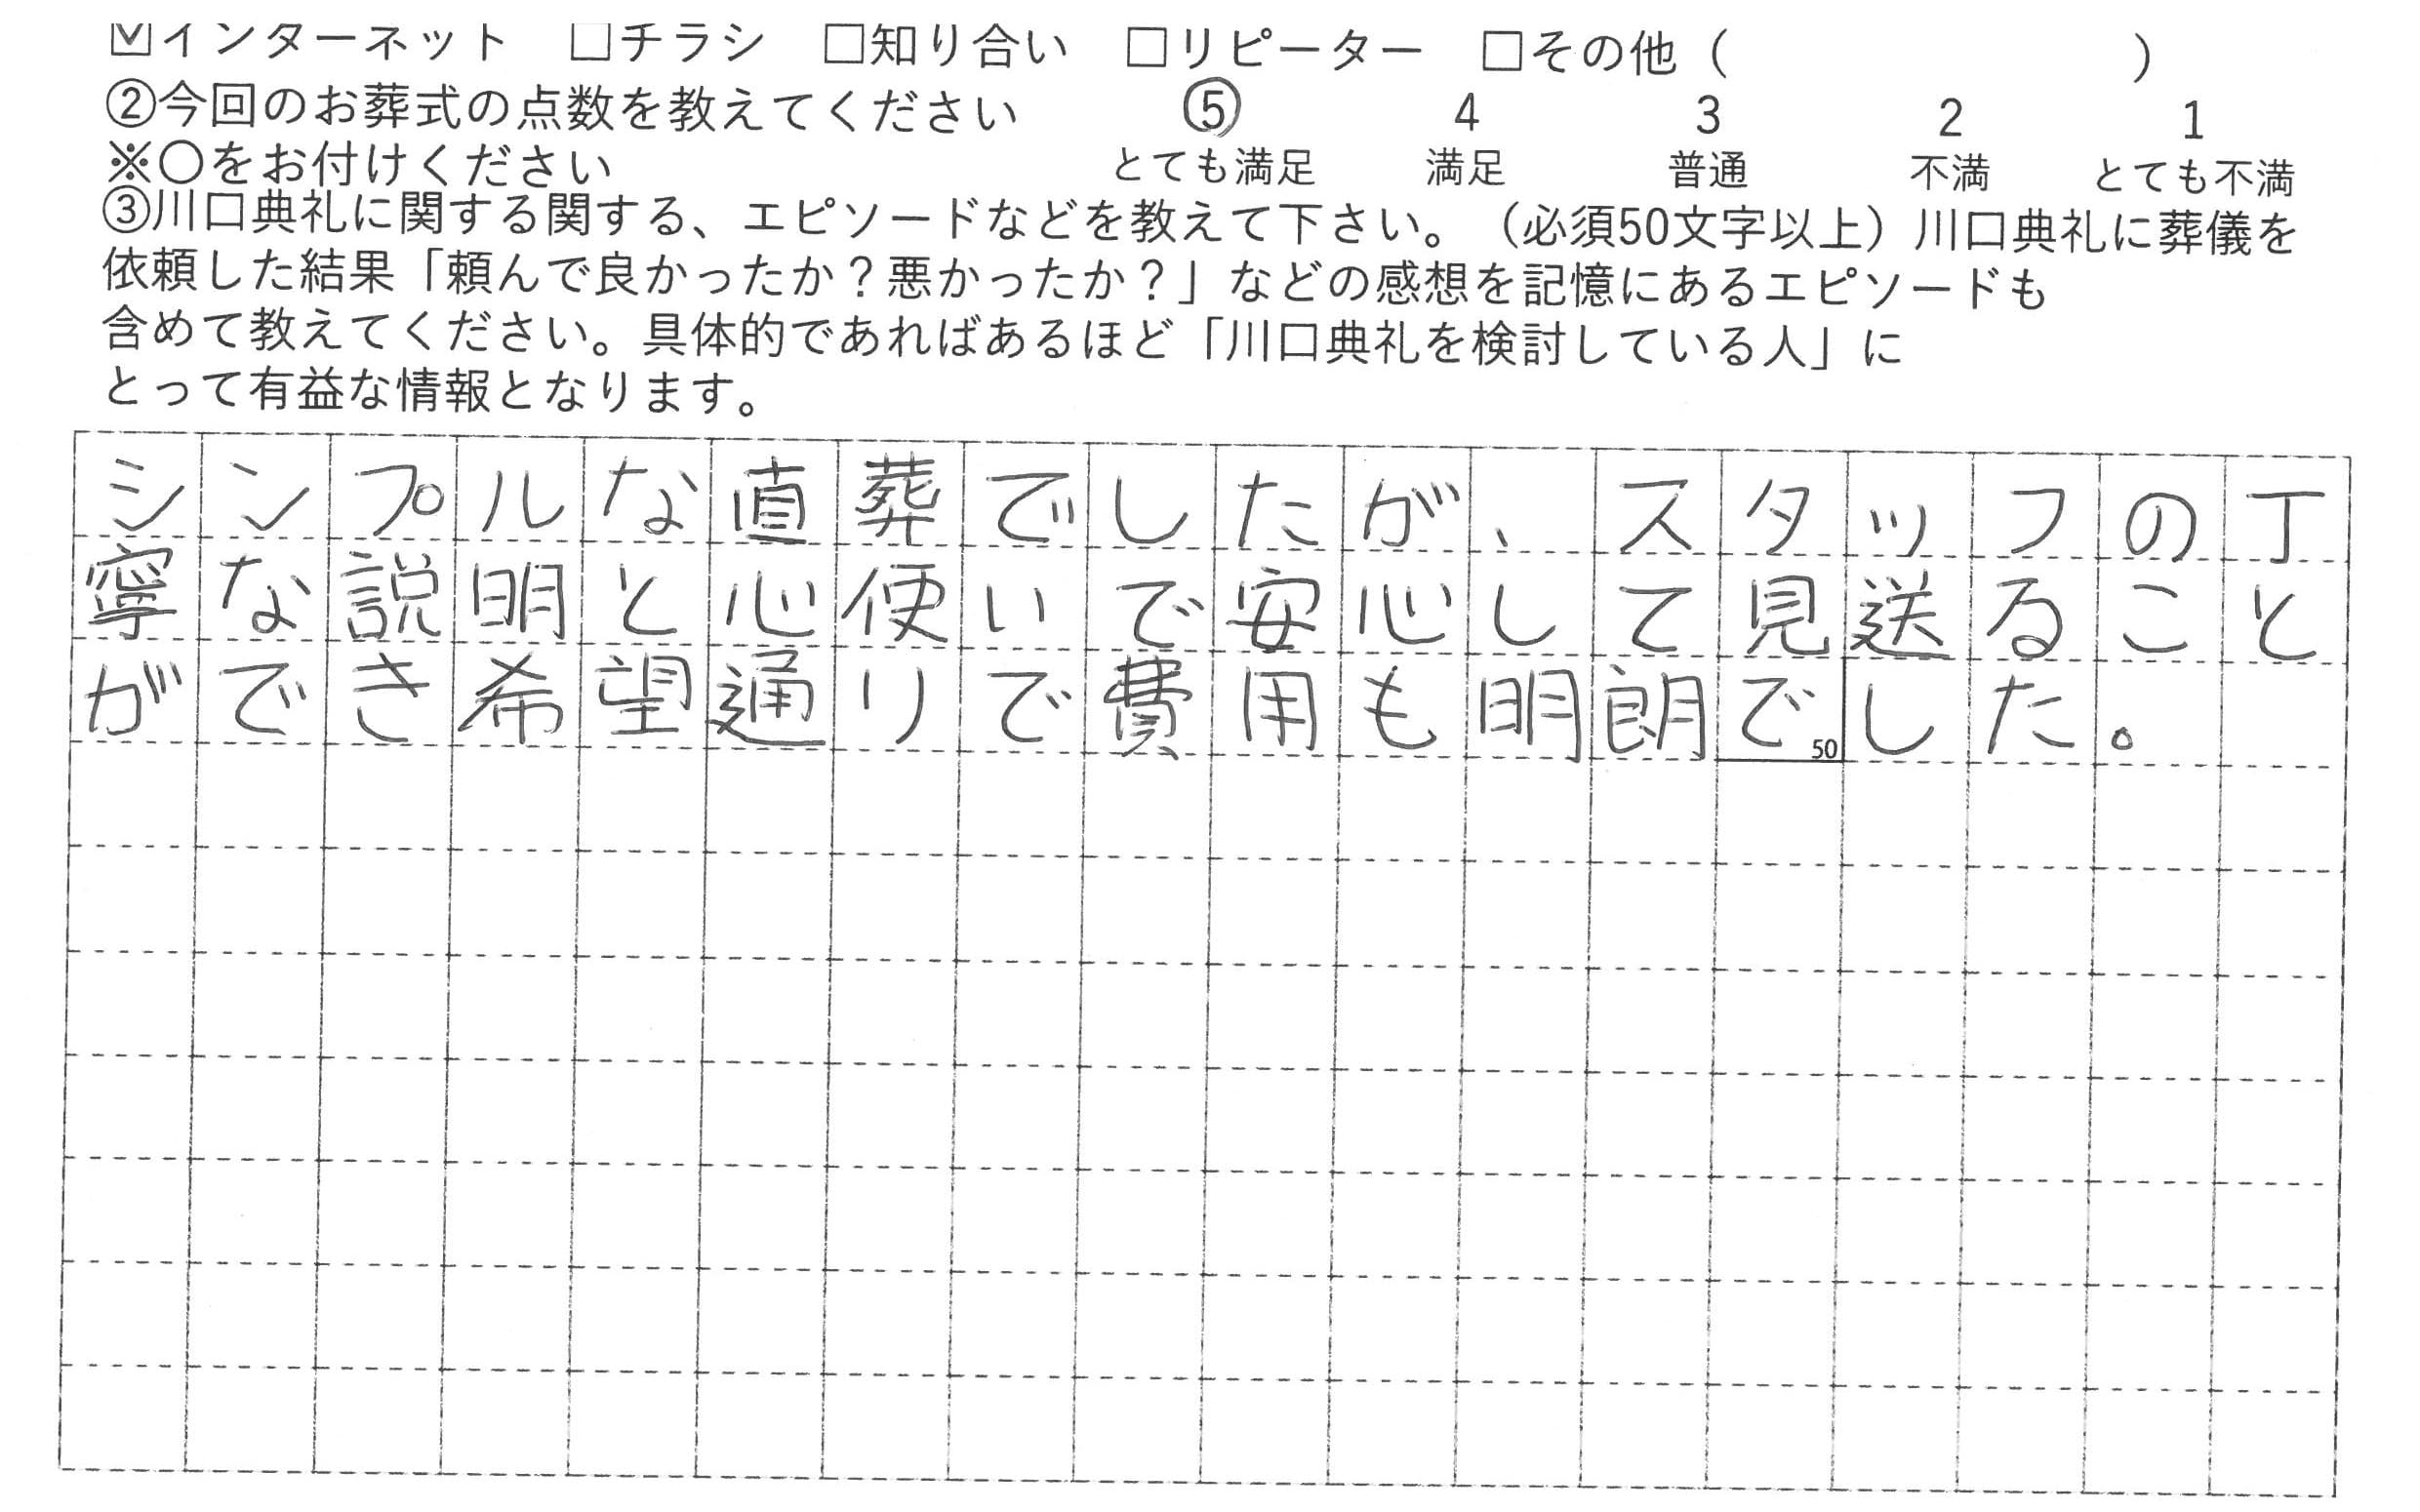 ☑インターネット □チラシ □知り合い □リピーター □その他（ ）
②今回のお葬式の点数を教えてください ⑤ 4 3 2 1
※〇をお付けください とても満足 満足 普通 不満 とても不満
③川口典礼に関する関する、エピソードなどを教えて下さい。（必須50文字以上）川口典礼に葬儀を
依頼した結果「頼んで良かったか？悪かったか？」などの感想を記憶にあるエピソードも
含めて教えてください。具体的であればあるほど「川口典礼を検討している人」に
とって有益な情報となります。
シンプルな直葬でしたが、スタッフの丁
寧な説明と心使いで安心して見送ること
ができ希望通りで費用も明朗でした。
50